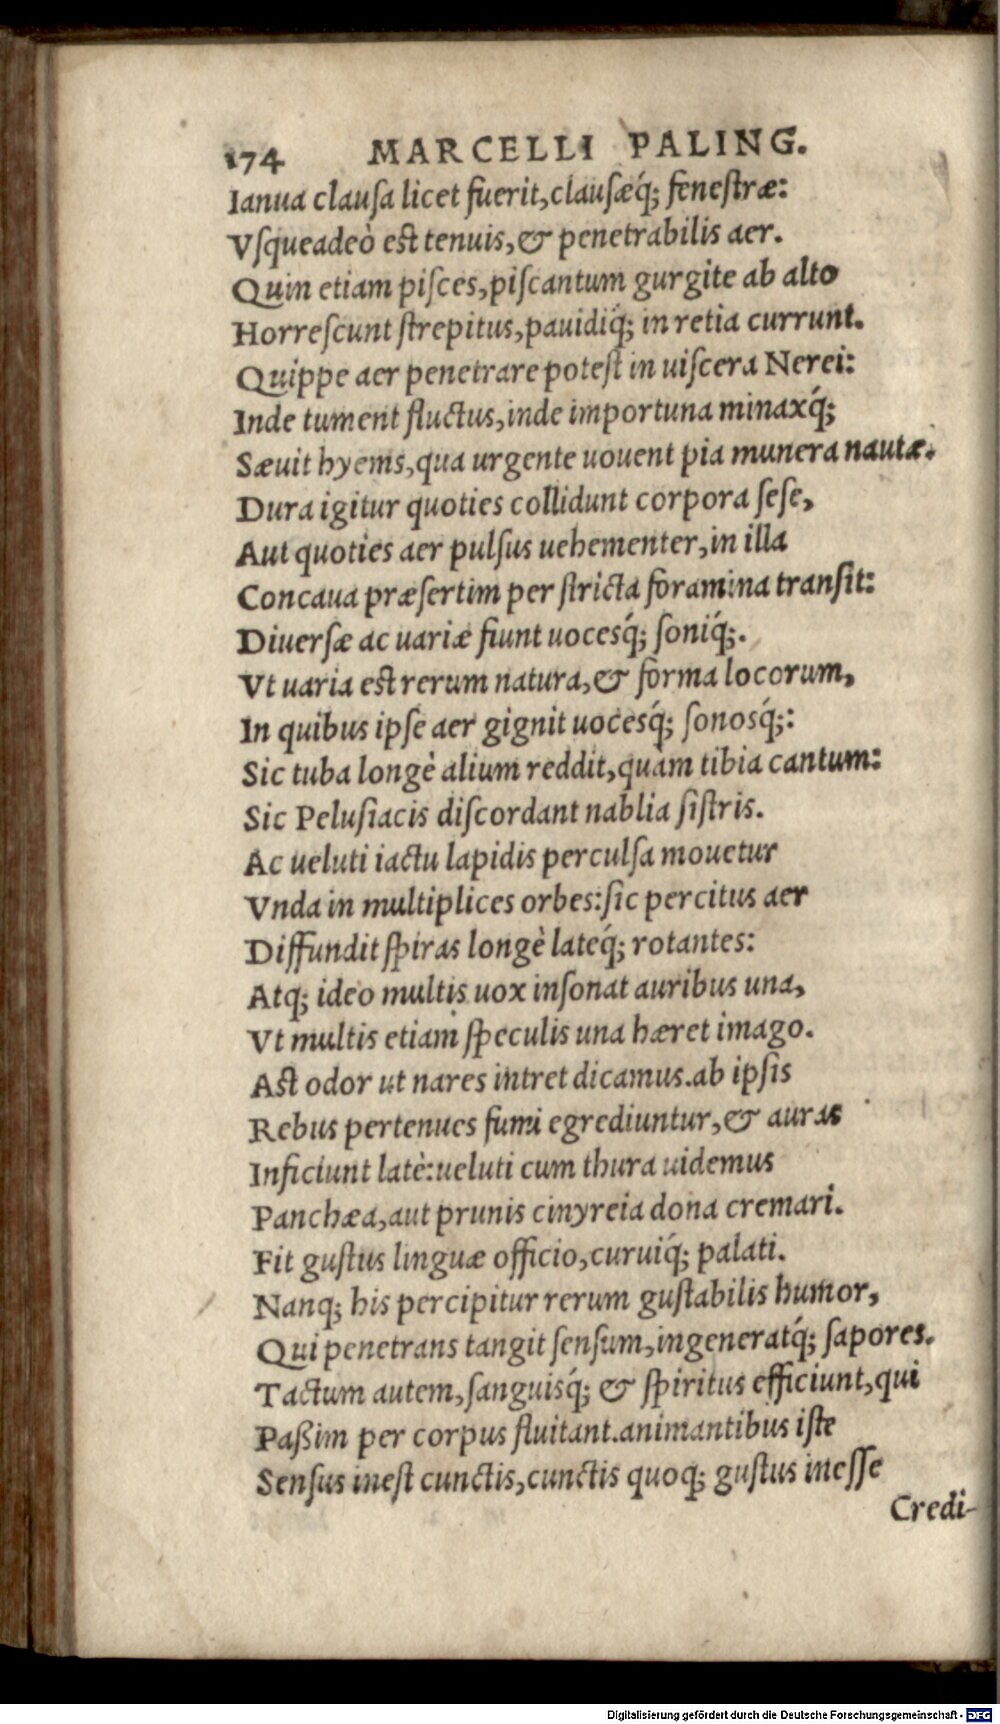 174 MARCELLI PALING.
Ianua clauſa licet fuerit, clauſæq́; feneſtræ:
Vſqueadeò eſt tenuis, & penetrabilis aer.
Quin etiam piſces, piſcantum gurgite ab alto
Horreſcunt ſtrepitus, pauidiq́; in retia currunt.
Quippe aer penetrare poteſt in uiſcera Nerei:
Inde tument fluctus, inde importuna minaxq́;
Sæuit hyems, qua urgente uouent pia munera nautæ.
Dura igitur quoties collidunt corpora ſeſe,
Aut quoties aer pulſus uehementer, in illa
Concaua præſertim per ſtricta foramina tranſit:
Diuerſæ ac uariæ fiunt uocesq́; ſoniq́;.
Vt uaria eſt rerum natura, & forma locorum,
In quibus ipſe aer gignit uocesq́; ſonosq́;:
Sic tuba longè alium reddit, quam tibia cantum:
Sic Peluſiacis diſcordant nablia ſiſtris.
Ac ueluti iactu lapidis perculſa mouetur
Vnda in multiplices orbes: ſic percitus aer
Diffundit ſpiras longè lateq́; rotantes:
Atq; ideo multis uox inſonat auribus una,
Vt multis etiam ſpeculis una hæret imago.
Aſt odor ut nares intret dicamus. ab ipſis
Rebus pertenues fumi egrediuntur, & auras
Inficiunt latè: ueluti cum thura uidemus
Panchæa, aut prunis cinyreia dona cremari.
Fit guſtus linguæ officio, curuiq́; palati.
Nanq; his percipitur rerum guſtabilis humor,
Qui penetrans tangit ſenſum, ingeneratq́; ſapores.
Tactum autem, ſanguisq́; & ſpiritus efficiunt, qui
Paßim per corpus fluitant. animantibus iſte
Senſus ineſt cunctis, cunctis quoq; guſtus ineſſe
Credi-
Digitalisierung gefördert durch die Deutsche Forschungsgemeinschaft - DFG